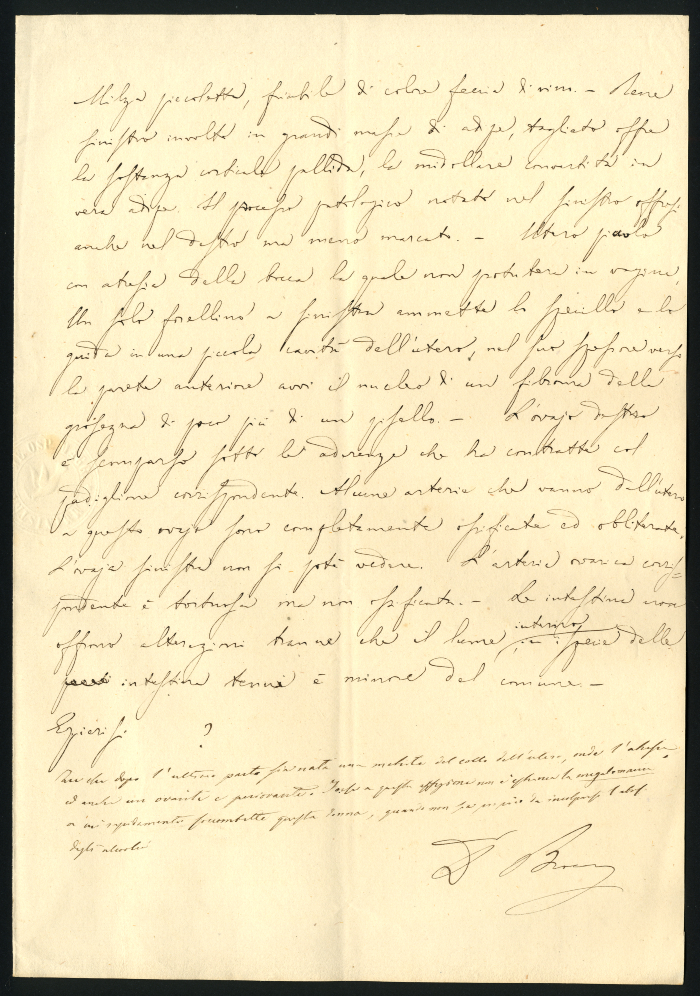 Milza piccoletta, friabile di colore feccia di vino. — Rene
sinistro involto in grandi masse di adipe, tagliato offre
la sostanza corticale pallida, la midollare convertita in
vera adipe. Il processo patologico notato nel sinistro offresi
anche nel destro ma meno marcato. — Utero piccolo
con atresia della bocca la quale non protubera in vagina,
Un solo forellino a sinistra ammette lo specillo e lo
guida in una piccola cavità dell'utero, nel suo spessore verso
la parete anteriore avvi il nucleo di un fibroma della
grossezza di poco più di un pisello. — L'ovajo destro
è scomparso sotto le aderenze che ha contratte col
padiglione corrispondente. Alcune arterie che vanno dall'utero
a questo ovajo sono completamente ossificate ed obliterate.
L'ovaja sinistra non si potè vedere. L'arteria ovarica corris=
pondente è tortuosa ma non ossificata. — Le intestina non
offrono alterazioni tranne che il lume interno, in specie delle
intestina tenui è minore del comune. —
Epicrisi ?
Pare che dopo l'ultimo parto sia nata una metrite del collo dell'utero, onde l'atresia,
ed anche una ovarite e periovarite. Forse a questa affezione non è estranea la
a cui rapidamente soccombette questa donna, quando non sia
degli alcoolici
Dr